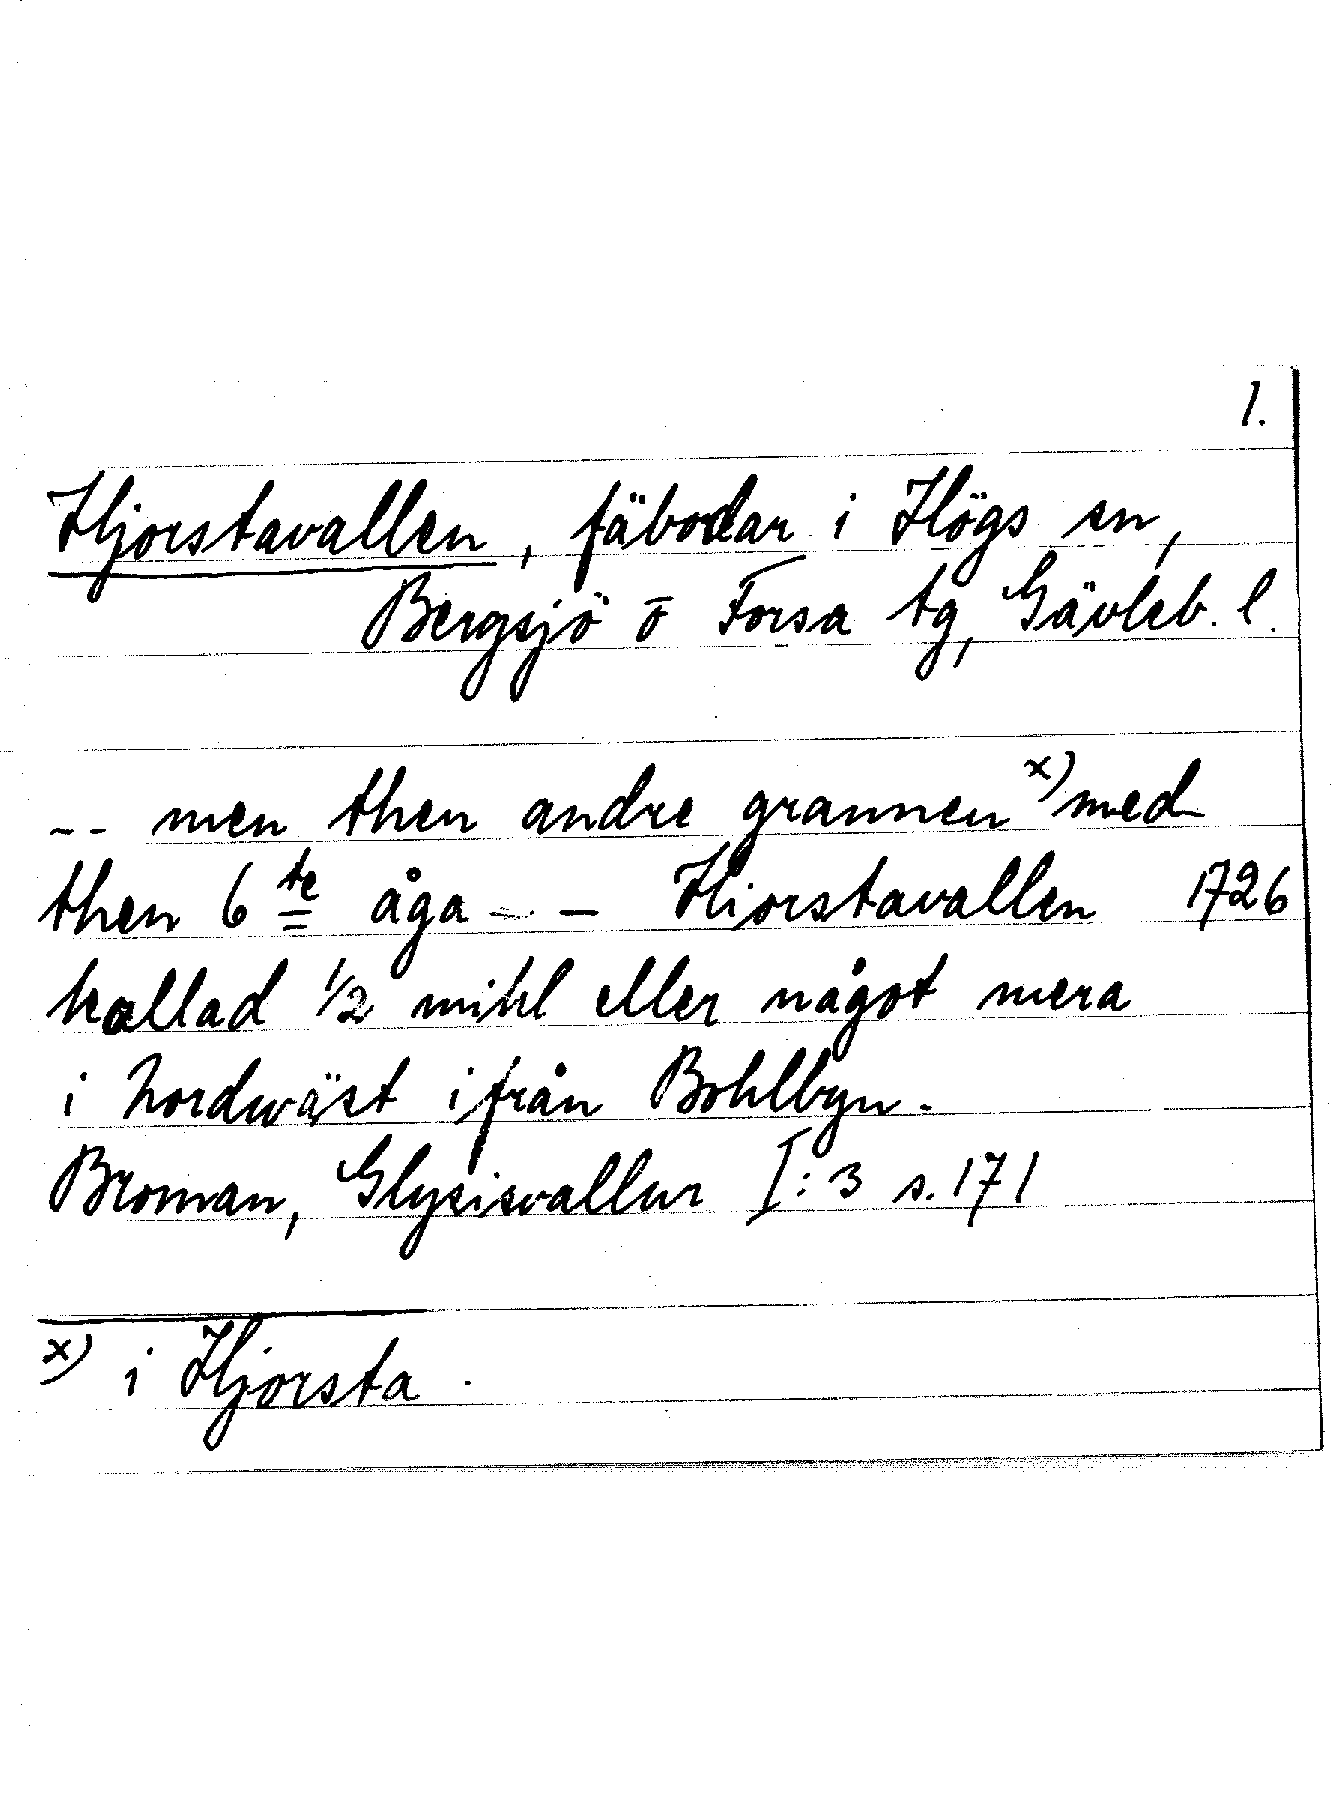 1.
Hjorstavallen, fäbodar i Högs sn,
Bergsjö o Forsa tg, Gävleb. l.
-- men then andre grannen x) med
then 6te åga -- Hiorstavallen 1726
kallad 1/2 mihl eller något mera
i nordwäst ifrån Bohlbyn.
Broman, Glysisvallur I:3 s. 171
x) i Hjorsta.